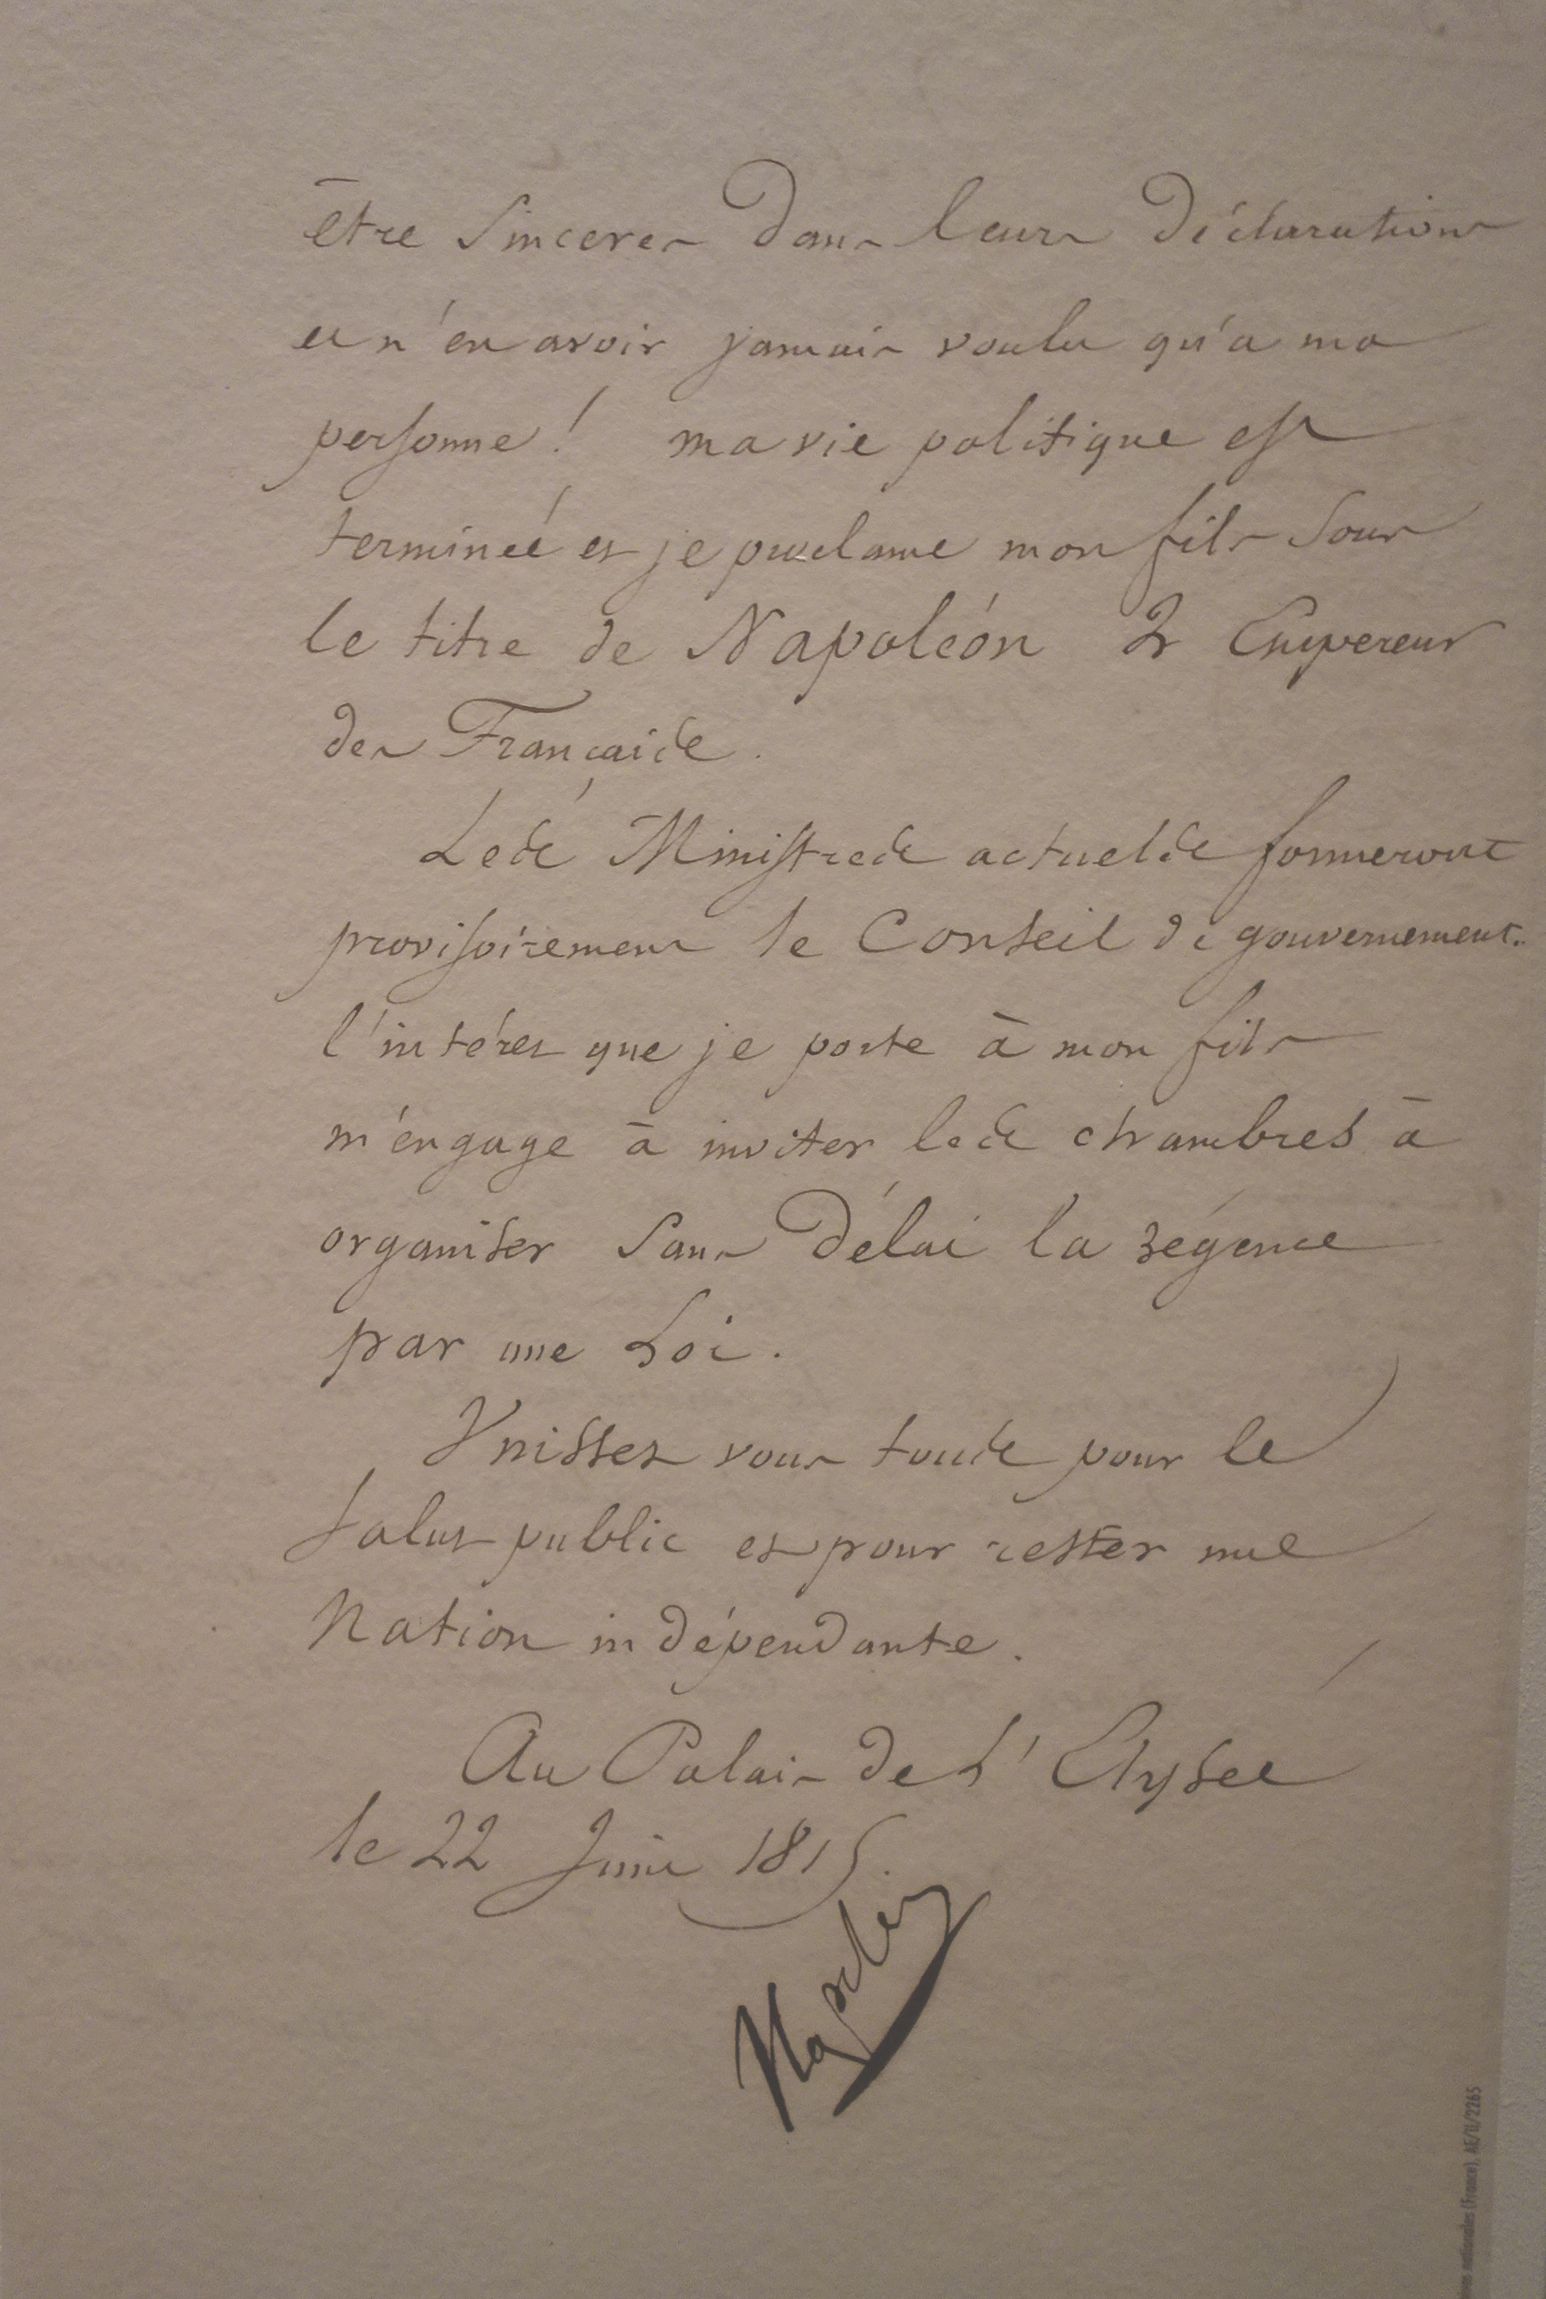 être sinceres dans leurs déclarations
et n'en avoir jamais voulu qu'a ma
personne! ma vie politique est
terminée et je proclame mon fils sous
le titre de Napoléon 2 Empereur
des Français.
Les Ministres actuels formeront
provisoirement le Conseil de gouvernement.
l'intéret que je porte à mon fils
m'engage à inviter les chambres à
organiser sans délai la régence
par une Loi.
Unissez vous tous pour le
salut public et pour rester une
Nation indépendante.
Au Palais de L'Elysée
le 22 Juin 1815.
Napoleon
nationales (France), AE/II/2265